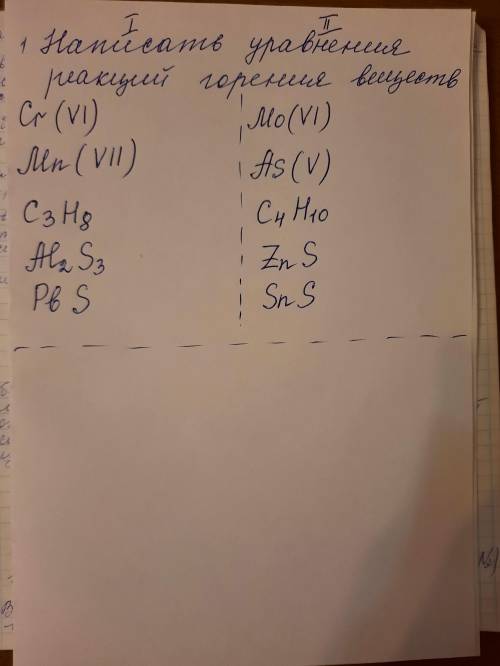 I II
1 Написать уравнения
реакций горения веществ
Cr (VI) Mo (VI)
Mn (VII) As (V)
C3H8 C4H10
Al2S3 ZnS
PbS SnS